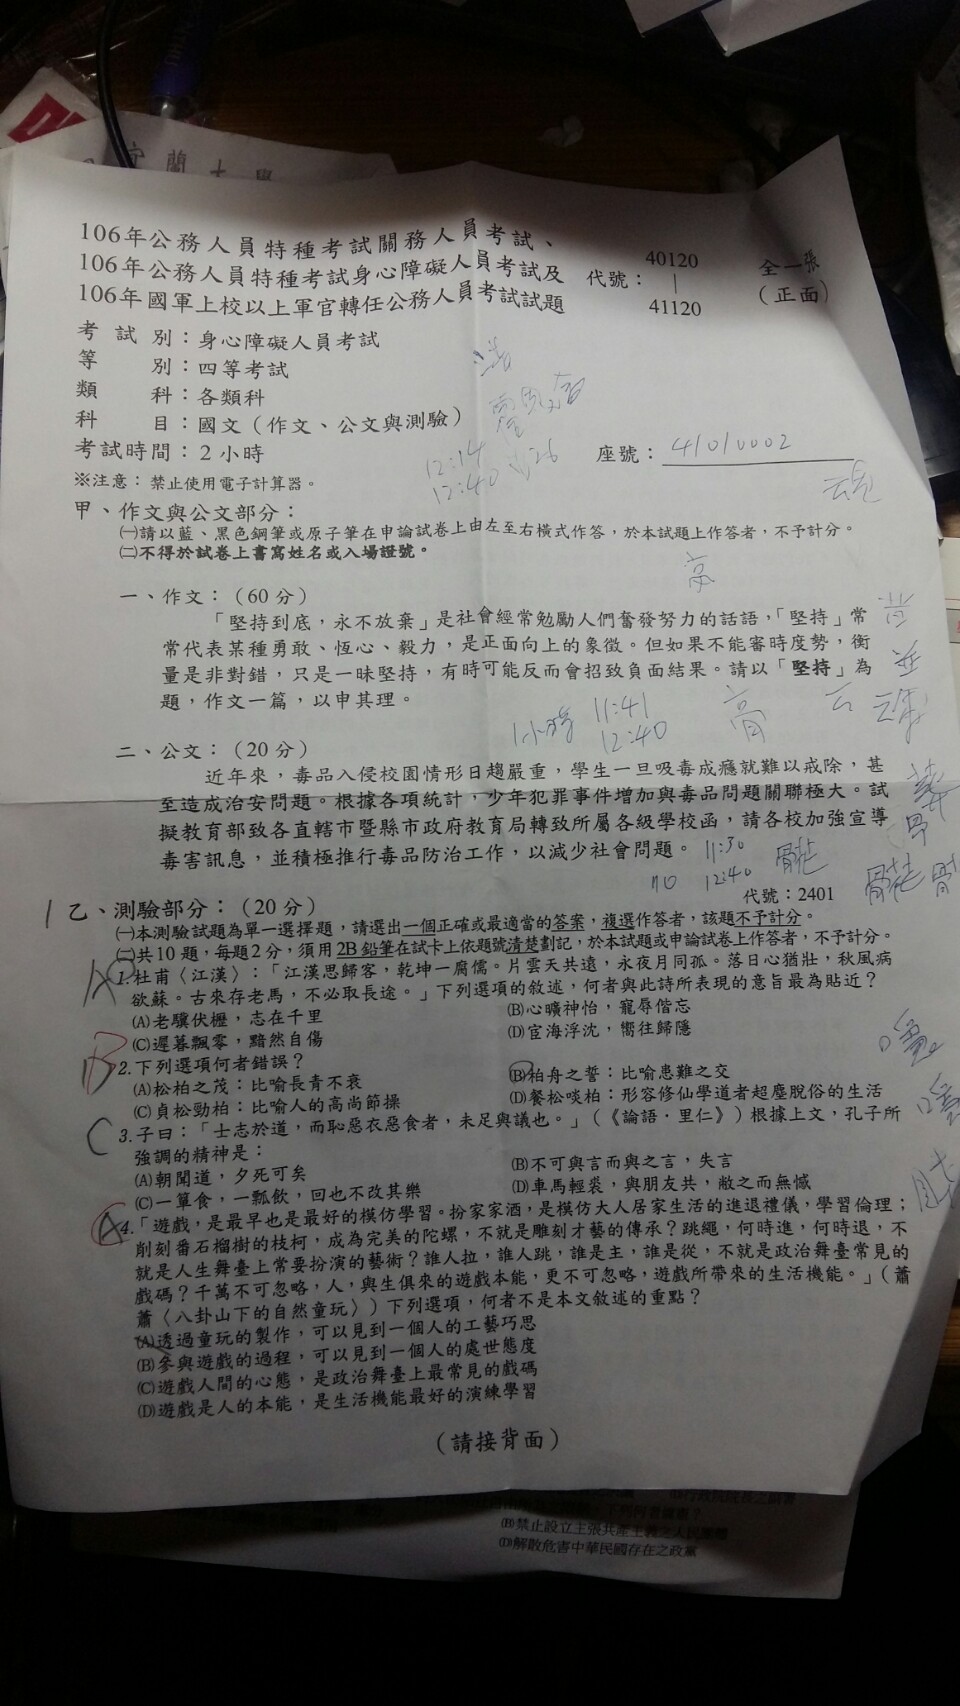 宜蘭大學
106年公務人員特種考試關務人員考試、
106年公務人員特種考試身心障礙人員考試及
106年國軍上校以上軍官轉任公務人員考試試題
代號：
40120
|
41120
全一張
(正面)
考試別：身心障礙人員考試
等別：四等考試
類科：各類科
科目：國文（作文、公文與測驗）
考試時間：2小時
座號：41010002
12:14
12:40
26
※注意：禁止使用電子計算器。
甲、作文與公文部分：
㈠請以藍、黑色鋼筆或原子筆在申論試卷上由左至右橫式作答，於本試題上作答者，不予計分。
㈡不得於試卷上書寫姓名或入場證號。
一、作文：（60分）
「堅持到底，永不放棄」是社會經常勉勵人們奮發努力的話語，「堅持」常
常代表某種勇敢、恆心、毅力，是正面向上的象徵。但如果不能審時度勢，衡
量是非對錯，只是一昧堅持，有時可能反而會招致負面結果。請以「堅持」為
題，作文一篇，以申其理。
1小時
11:41
12:40
二、公文：（20分）
近年來，毒品入侵校園情形日趨嚴重，學生一旦吸毒成癮就難以戒除，甚
至造成治安問題。根據各項統計，少年犯罪事件增加與毒品問題關聯極大。試
擬教育部致各直轄市暨縣市政府教育局轉致所屬各級學校函，請各校加強宣導
毒害訊息，並積極推行毒品防治工作，以減少社會問題。
11:30
70
12:40
代號：2401
乙、測驗部分：（20分）
㈠本測驗試題為單一選擇題，請選出一個正確或最適當的答案，複選作答者，該題不予計分。
㈡共10題，每題2分，須用2B鉛筆在試卡上依題號清楚劃記，於本試題或申論試卷上作答者，不予計分。
A
1.杜甫〈江漢〉：「江漢思歸客，乾坤一腐儒。片雲天共遠，永夜月同孤。落日心猶壯，秋風病
欲蘇。古來存老馬，不必取長途。」下列選項的敘述，何者與此詩所表現的意旨最為貼近？
(A)老驥伏櫪，志在千里
(B)心曠神怡，寵辱偕忘
(C)遲暮飄零，黯然自傷
(D)宦海浮沈，嚮往歸隱
B
2.下列選項何者錯誤？
(A)松柏之茂：比喻長青不衰
(B)柏舟之誓：比喻患難之交
(C)貞松勁柏：比喻人的高尚節操
(D)餐松啖柏：形容修仙學道者超塵脫俗的生活
C
3.子曰：「士志於道，而恥惡衣惡食者，未足與議也。」（《論語．里仁》）根據上文，孔子所
強調的精神是：
(A)朝聞道，夕死可矣
(B)不可與言而與之言，失言
(C)一簞食，一瓢飲，回也不改其樂
(D)車馬輕裘，與朋友共，敝之而無憾
A
4.「遊戲，是最早也是最好的模仿學習。扮家家酒，是模仿大人居家生活的進退禮儀，學習倫理；
削刻番石榴樹的枝柯，成為完美的陀螺，不就是雕刻才藝的傳承？跳繩，何時進，何時退，不
就是人生舞臺上常要扮演的藝術？誰人拉，誰人跳，誰是主，誰是從，不就是政治舞臺常見的
戲碼？千萬不可忽略，人，與生俱來的遊戲本能，更不可忽略，遊戲所帶來的生活機能。」（蕭
蕭〈八卦山下的自然童玩〉）下列選項，何者不是本文敘述的重點？
(A)透過童玩的製作，可以見到一個人的工藝巧思
(B)參與遊戲的過程，可以見到一個人的處世態度
(C)遊戲人間的心態，是政治舞臺上最常見的戲碼
(D)遊戲是人的本能，是生活機能最好的演練學習
（請接背面）
(B)禁止設立主張共產主義之人民團體
(D)解散危害中華民國存在之政黨